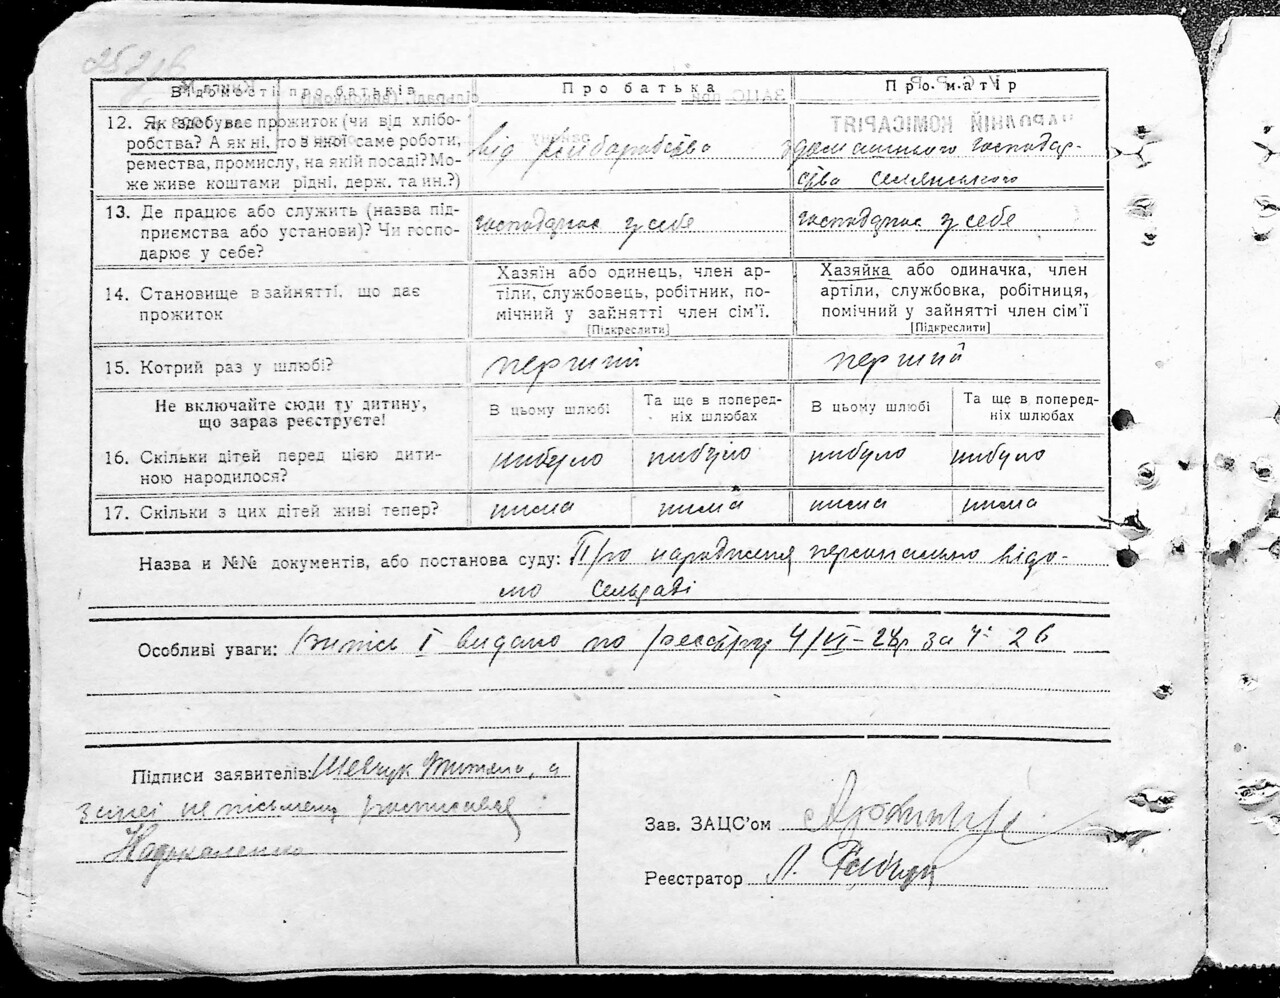 Відомості про батьків Про батька Про матір
12. Як здобуває прожиток (чи від хлібо-
робства? А як ні, то з якої саме роботи,
ремества, промислу, на якій посаді? Мо-
же живе коштами рідні, держ. та ин.?)
від хліборобства
домашнього господар-
ства селянського
13. Де працює або служить (назва під-
приємства або установи)? Чи госпо-
дарює у себе?
господарює у себе
господарює у себе
14. Становище в зайнятті, що дає
прожиток
Хазяїн або одинець, член ар-
тіли, службовець, робітник, по-
мічний у зайнятті член сім’ї.
[Підкреслити]
Хазяйка або одиначка, член
артіли, службовка, робітниця,
помічний у зайнятті член сім’ї
[Підкреслити]
15. Котрий раз у шлюбі? перший перший
Не включайте сюди ту дитину,
що зараз реєструєте!
В цьому шлюбі
Та ще в поперед-
ніх шлюбах
В цьому шлюбі
Та ще в поперед-
ніх шлюбах
16. Скільки дітей перед цією дити-
ною народилося?
нибуло нибуло нибуло нибуло
17. Скільки з цих дітей живі тепер? нима нима нима нима
Назва и №№ документів, або постанова суду: Про народження персонально відо-
мо сельраді
Особливі уваги: Витяг І видано по реєстру 4/VI-28р за № 26
Підписи заявителів: Шевчук а
неписьмен
Зав. ЗАЦС’ом
Реєстратор Л.